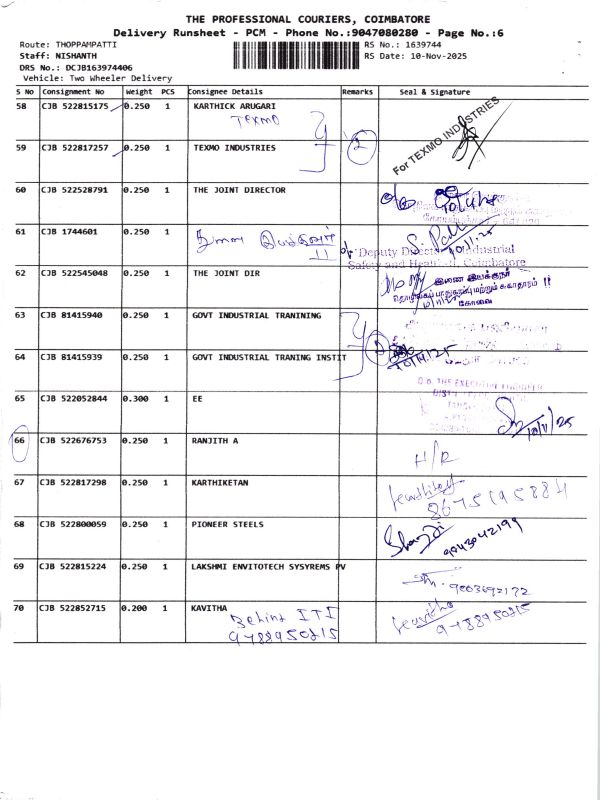 THE PROFESSIONAL COURIERS, COIMBATORE
Delivery Runsheet - PCM - Phone No.:9047080280 - Page No.:6
Route: THOPPAMPATTI
RS No.: 1639744
Staff: NISHANTH
RS Date: 10-Nov-2025
DRS No.: DCJB163974406
Vehicle: Two Wheeler Delivery
S No Consignment No Weight PCS Consignee Details Remarks Seal & Signature
58 CJB 522815175 0.250 1 KARTHICK ARUGARI
TEXMO
2
For TEXMO INDUSTRIES
59 CJB 522817257 0.250 1 TEXMO INDUSTRIES
60 CJB 522528791 0.250 1 THE JOINT DIRECTOR
61 CJB 1744601 0.250 1
10/11/25
Deputy Director Industrial
Safety and Health-II, Coimbatore
62 CJB 522545048 0.250 1 THE JOINT DIR
இணை இயக்குநர்
தொழிலகப் பாதுகாப்பு மற்றும் சுகாதாரம் II
கோவை
63 CJB 81415940 0.250 1 GOVT INDUSTRIAL TRANINING
64 CJB 81415939 0.250 1 GOVT INDUSTRIAL TRANING INSTIT
10/11/25
65 CJB 522052844 0.300 1 EE
O/o. THE EXECUTIVE ENGINEER
10/11/25
66 CJB 522676753 0.250 1 RANJITH A
H/R
67 CJB 522817298 0.250 1 KARTHIKETAN
8675195884
68 CJB 522800059 0.250 1 PIONEER STEELS
9943042199
69 CJB 522815224 0.250 1 LAKSHMI ENVITOTECH SYSYREMS PV
9003692172
70 CJB 522852715 0.200 1 KAVITHA
Behind ITI
9788950815
Kavitha
9788950815